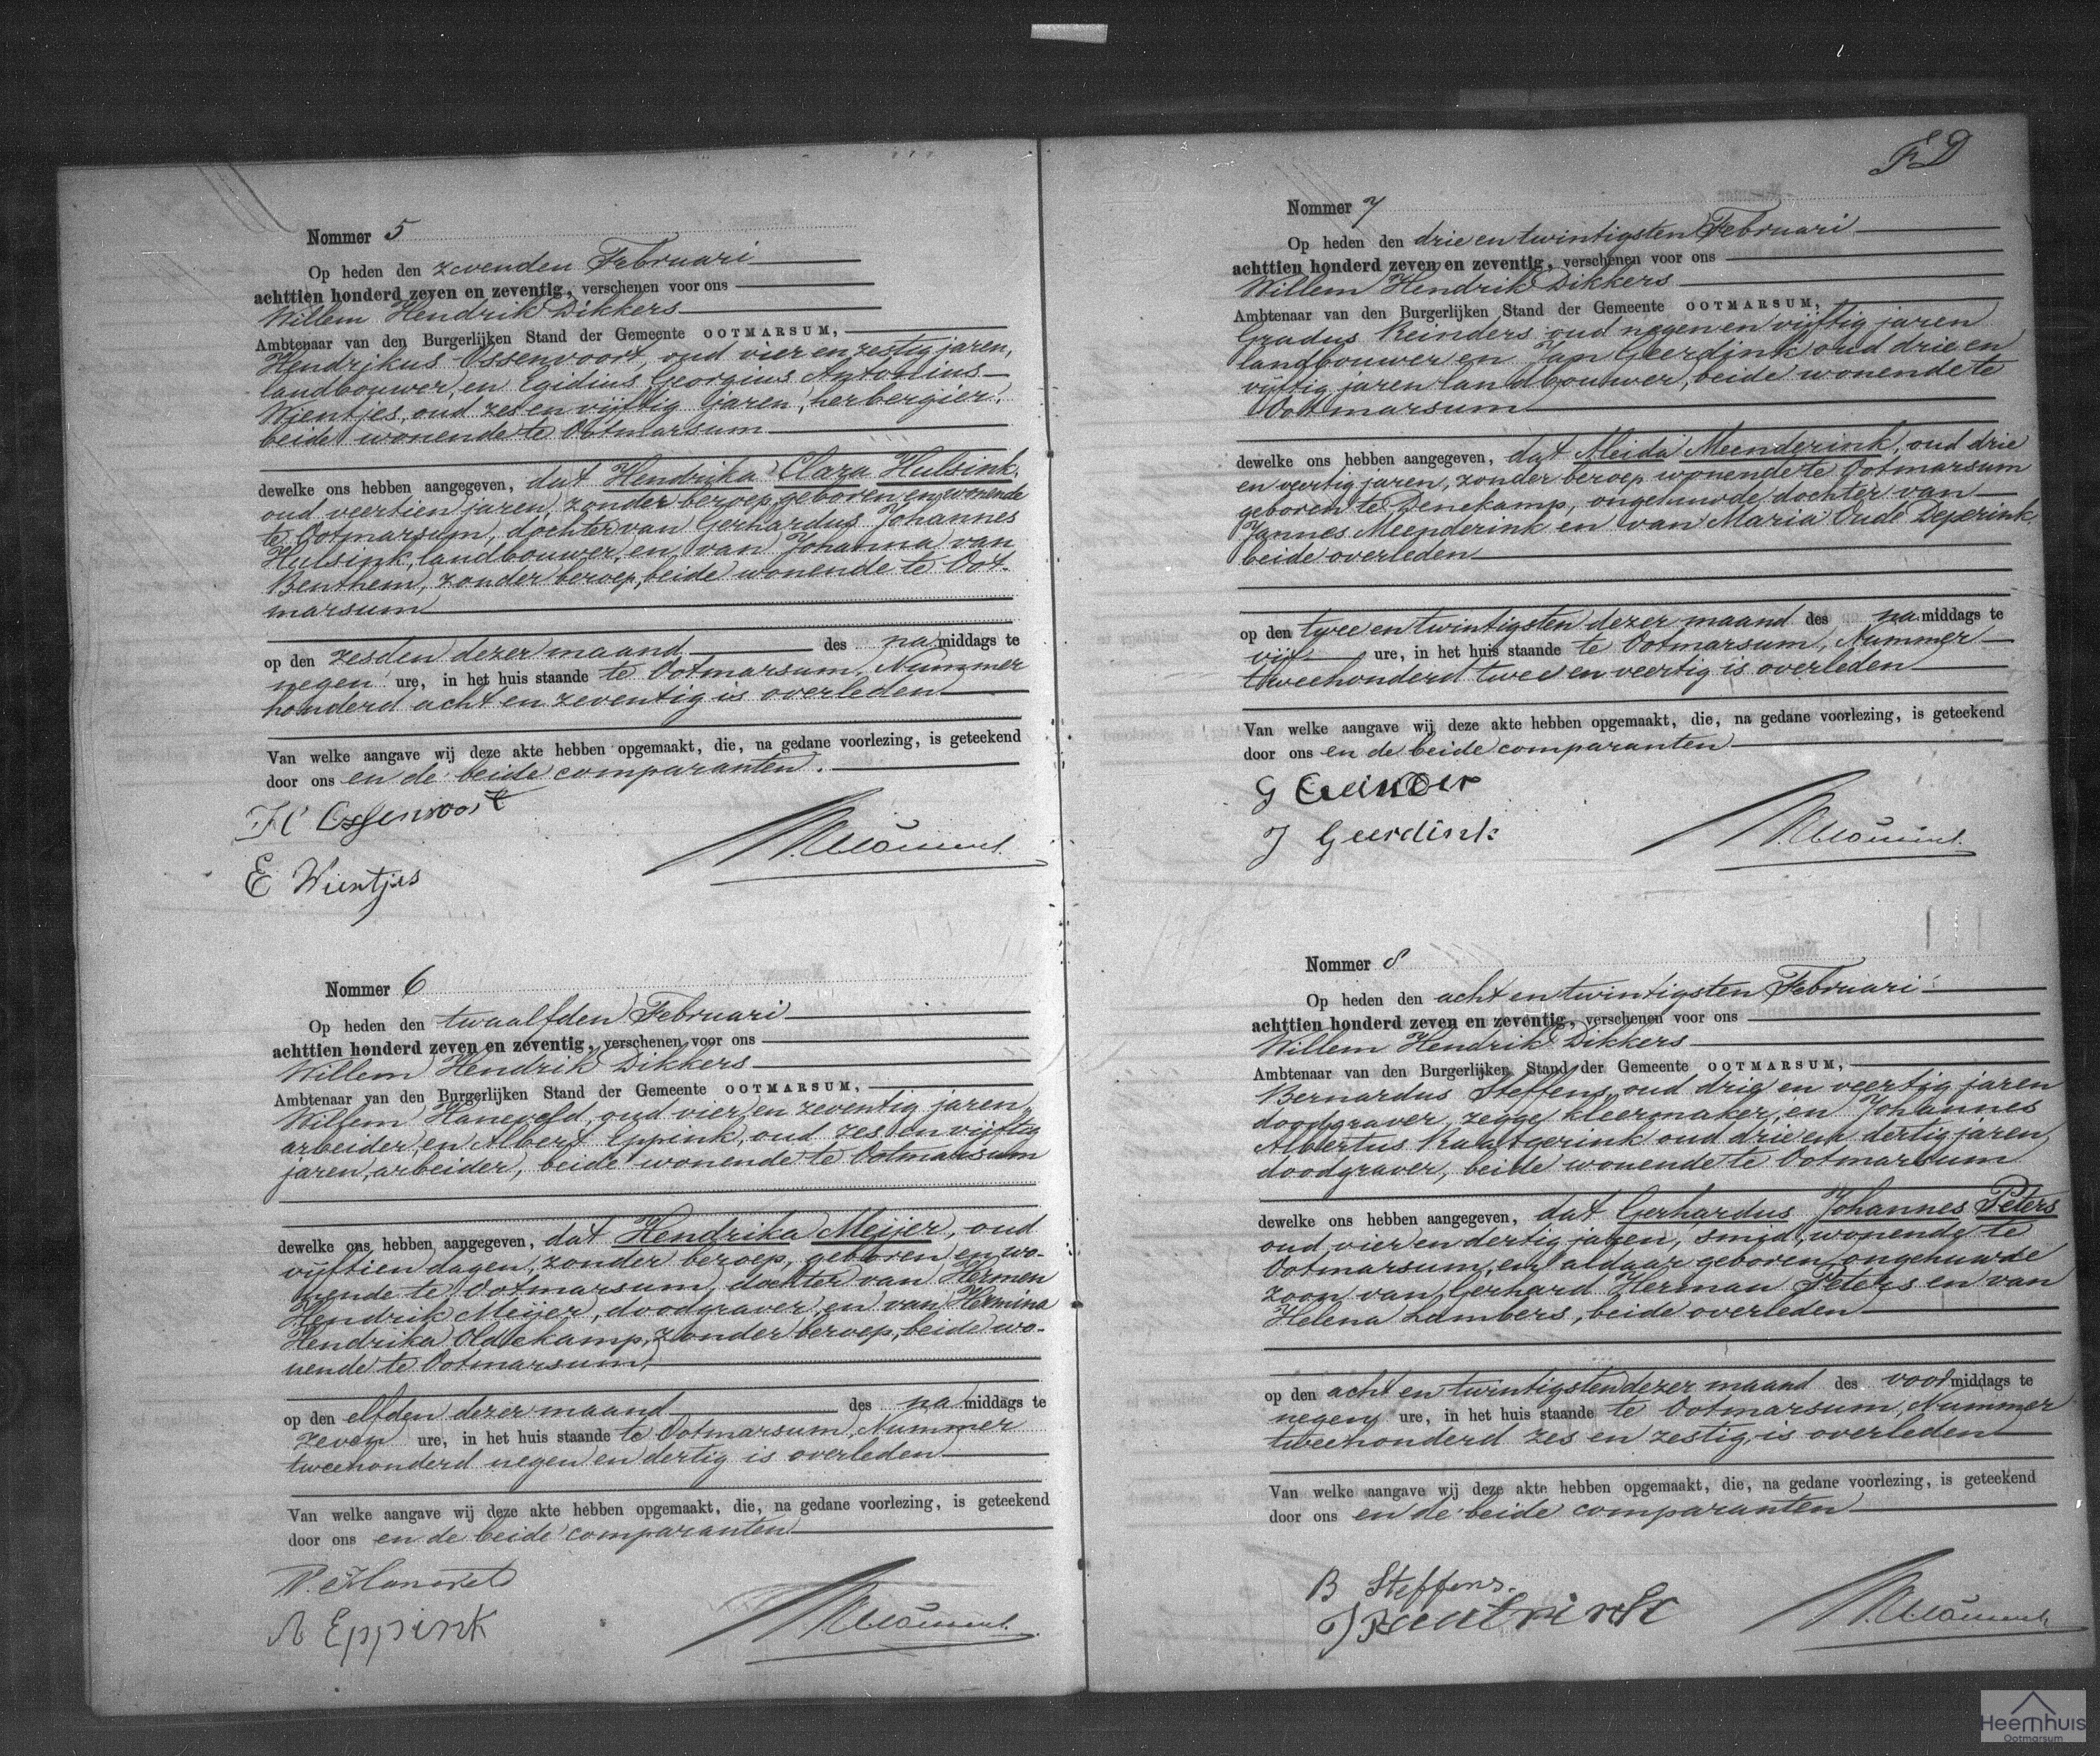 Nommer 5
Op heden den zevenden Februari
achttien honderd zeven en zeventig, verschenen voor ons
Willem Hendrik Dikkers
Ambtenaar van den Burgerlijken Stand der Gemeente OOTMARSUM,
Hendrikus Ossenvoort, oud vier en zestig jaren,
landbouwer, en Egidius Georgius Antonius
Wientjes, oud zes en vijftig jaren, herbergier,
beide wonende te Ootmarsum
dewelke ons hebben aangegeven, dat Hendrika Clara Hulsink,
oud veertien jaren, zonder beroep, geboren en wonende
te Ootmarsum, dochter van Gerhardus Johannes
Hulsink, landbouwer, en van Johanna van
Benthem, zonder beroep, beide wonende te Oot-
marsum
op den zesden dezer maand des na middags te
negen ure, in het huis staande te Ootmarsum, Nummer
honderd acht en zeventig is overleden
Van welke aangave wij deze akte hebben opgemaakt, die, na gedane voorlezing, is geteekend
door ons en de beide comparanten.
H Ossenvoort
E Wientjes
Nommer 6
Op heden den twaalfden Februari
achttien honderd zeven en zeventig, verschenen voor ons
Willem Hendrik Dikkers
Ambtenaar van den Burgerlijken Stand der Gemeente OOTMARSUM,
Willem Haneveld, oud vier en zeventig jaren,
arbeider, en Albert Eppink, oud zes en vijftig
jaren, arbeider, beide wonende te Ootmarsum
dewelke ons hebben aangegeven, dat Hendrika Meijer, oud
vijftien dagen, zonder beroep, geboren en wo-
nende te Ootmarsum, dochter van Hermen
Hendrik Meijer, doodgraver, en van Hermina
Hendrika Oldekamp, zonder beroep, beide wo-
nende te Ootmarsum,
op den elfden dezer maand des na middags te
zeven ure, in het huis staande te Ootmarsum, Nummer
tweehonderd negen en dertig is overleden
Van welke aangave wij deze akte hebben opgemaakt, die, na gedane voorlezing, is geteekend
door ons en de beide comparanten
W. Haneveld
A Eppink
Nommer 7
Op heden den drie en twintigsten Februari
achttien honderd zeven en zeventig, verschenen voor ons
Willem Hendrik Dikkers
Ambtenaar van den Burgerlijken Stand der Gemeente OOTMARSUM,
Gradus Reinders oud negen en vijftig jaren
landbouwer en Jan Geerdink oud drie en
vijftig jaren landbouwer, beide wonende te
Ootmarsum
dewelke ons hebben aangegeven, dat Aleida Meenderink, oud drie
en veertig jaren, zonder beroep wonende te Ootmarsum
geboren te Denekamp, ongehuwde dochter van
Jannes Meenderink en van Maria Oude Deperink,
beide overleden
op den twee en twintigsten dezer maand des na middags te
vijf ure, in het huis staande te Ootmarsum, Nummer
tweehonderd twee en veertig is overleden
Van welke aangave wij deze akte hebben opgemaakt, die, na gedane voorlezing, is geteekend
door ons en de beide comparanten
G Reinder
J Geerdink
Nommer 8
Op heden den acht en twintigsten Februari
achttien honderd zeven en zeventig, verschenen voor ons
Willem Hendrik Dikkers
Ambtenaar van den Burgerlijken Stand der Gemeente OOTMARSUM,
Bernardus Steffens, oud drie en veertig jaren
doodgraver, zegge kleermaker, en Johannes
Albertus oud drie en dertig jaren,
doodgraver, beide wonende te Ootmarsum
dewelke ons hebben aangegeven, dat Gerhardus Johannes Peters
oud vier en dertig jaren, smid, wonende te
Ootmarsum, en aldaar geboren, ongehuwde
zoon van Gerhard Herman Peters en van
Helena Lambers, beide overleden
op den acht en twintigsten dezer maand des voor middags te
negen ure, in het huis staande te Ootmarsum, Nummer
tweehonderd zes en zestig, is overleden
Van welke aangave wij deze akte hebben opgemaakt, die, na gedane voorlezing, is geteekend
door ons en de beide comparanten
B Steffens.
Heemhuis
Ootmarsum